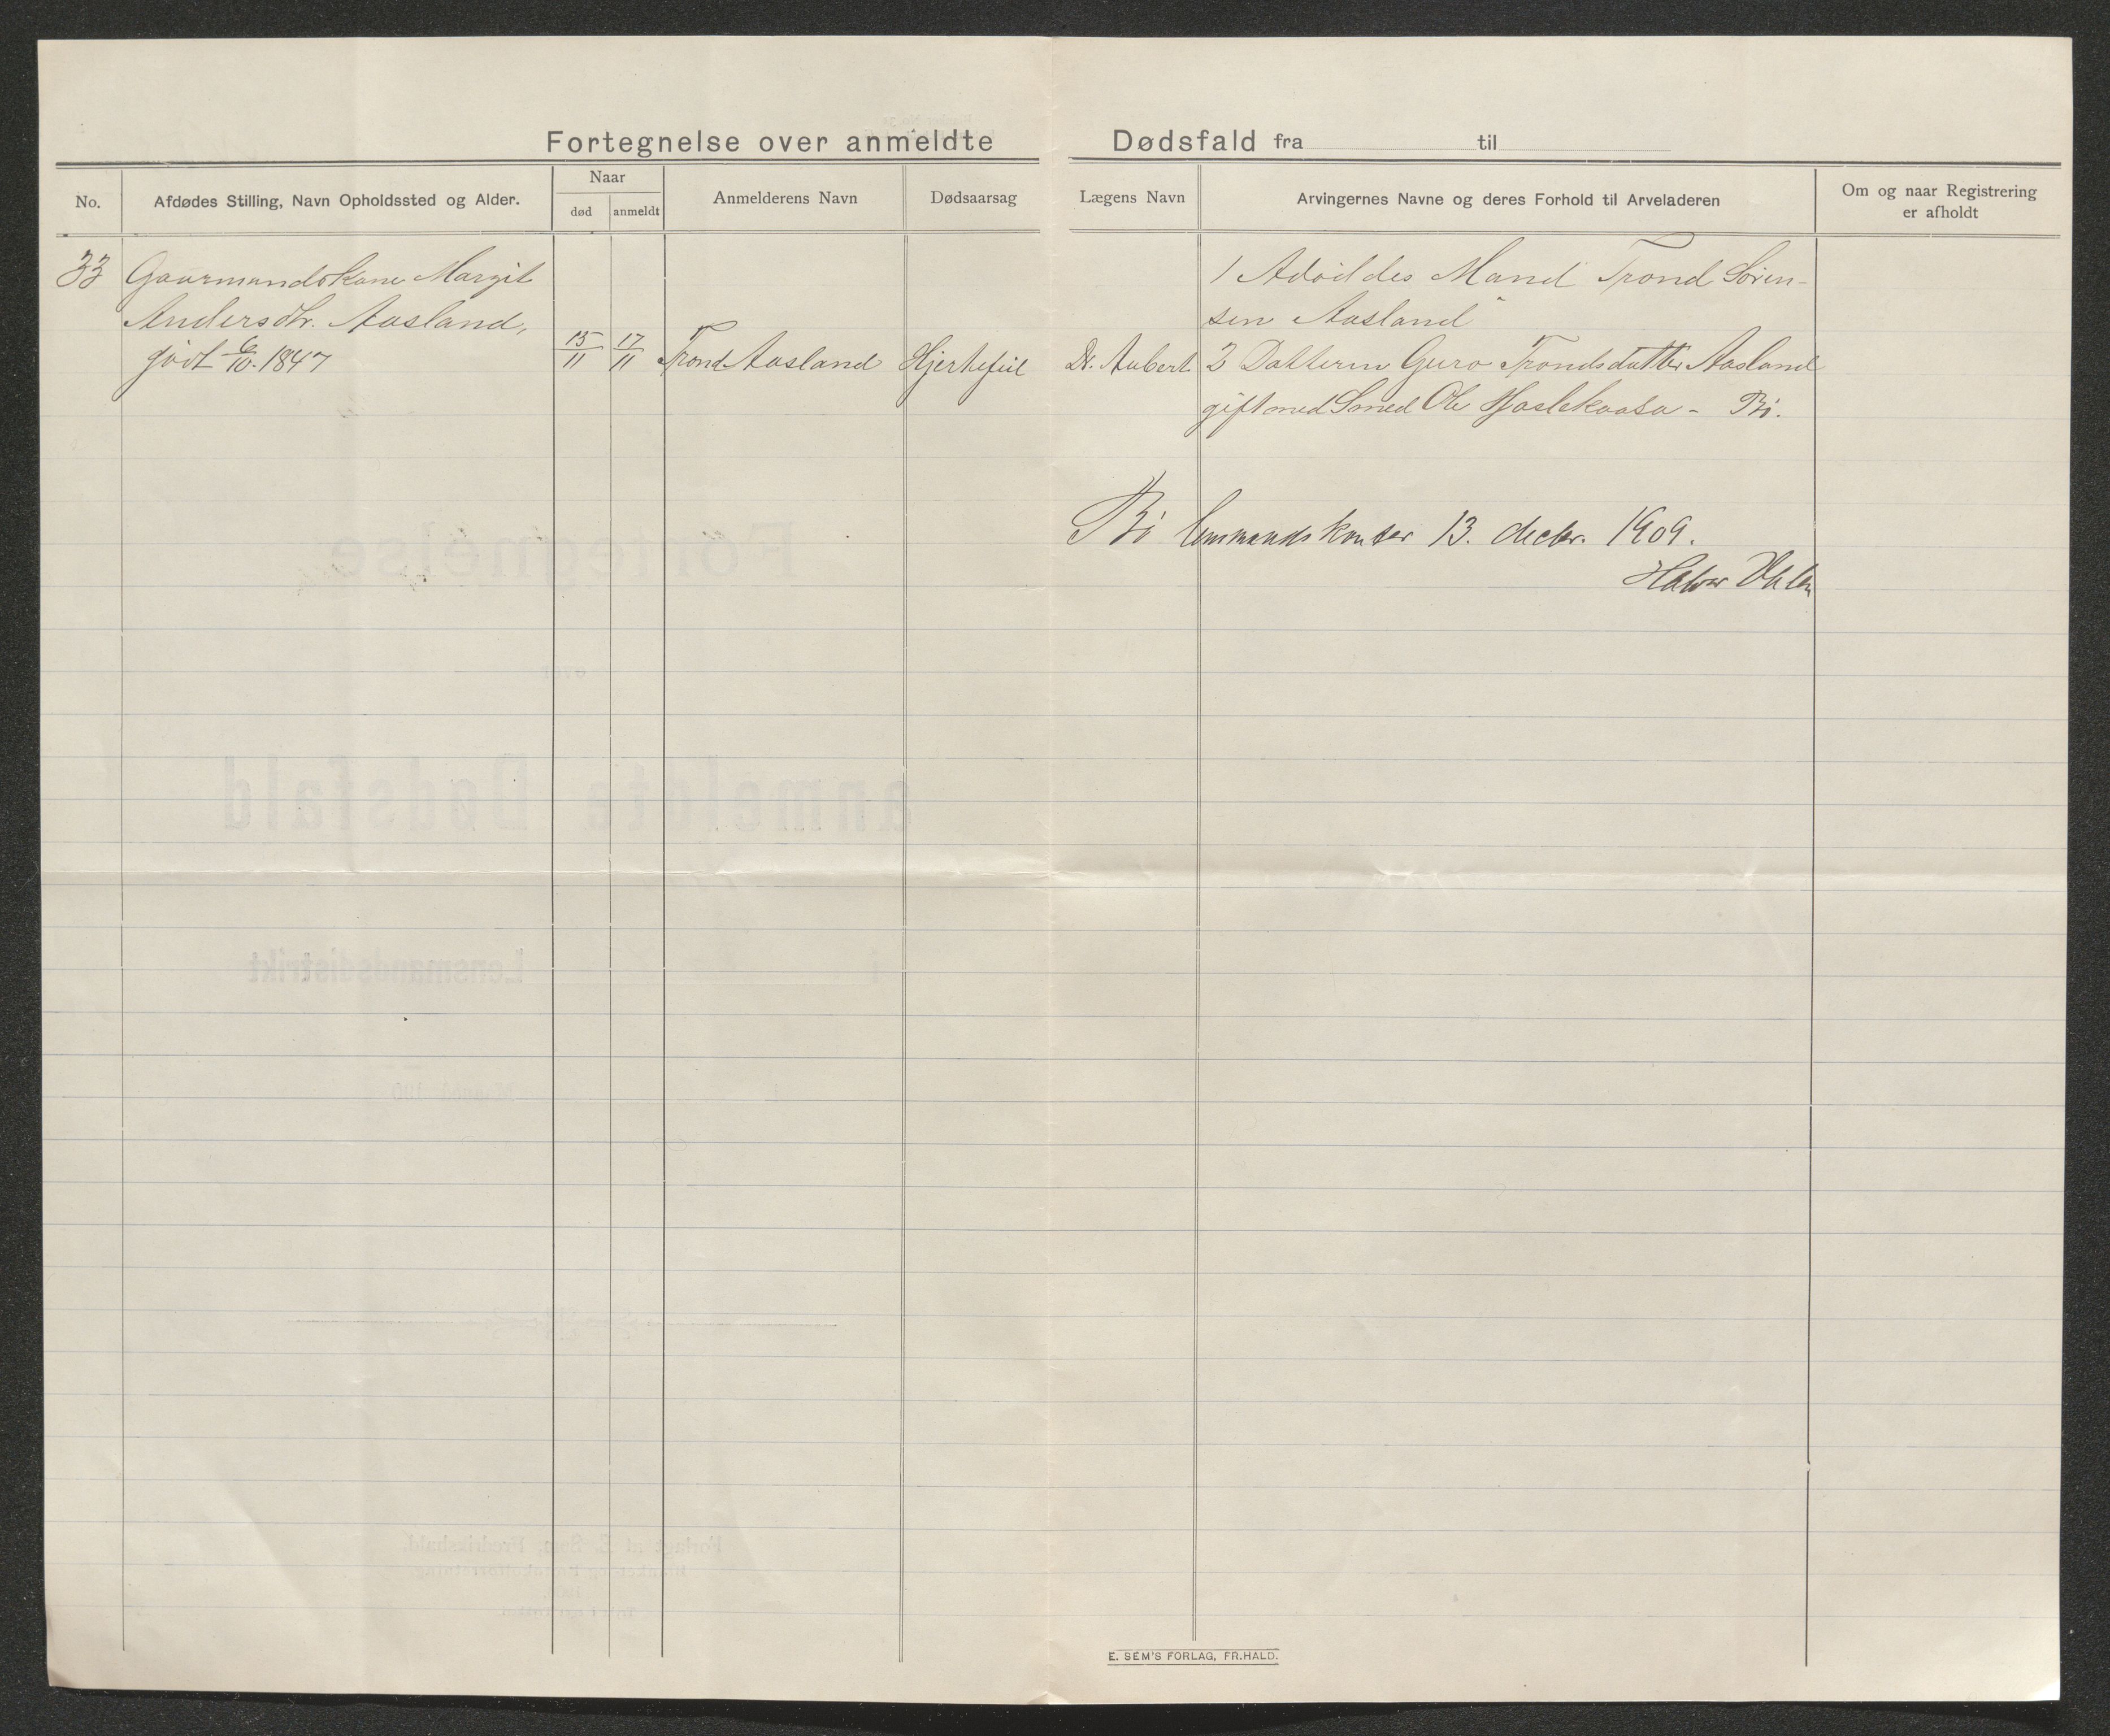 Fortegnelse over anmeldte Dødsfald fra til
No.
Afdødes Stilling, Navn Opholdssted og Alder.
Naar
død
anmeldt
Anmelderens Navn
Dødsaarsag
Lægens Navn
Arvingernes Navne og deres Forhold til Arveladeren
Om og naar Registrering
er afholdt
33
Gaarmandskone Margit
Andersdtr. Aasland,
født 6/10 1847
15/11
17/11
Trond Aasland
Hjertefeil
Dr. Aubert
1 Mand Trond Søren-
sen Aasland
2 Datteren Guro Trondsdatter Aasland
gift med Smed Ole - Bø.
Bø lensmandskontor 13. decbr. 1909.
Halvor
E. SEM'S FORLAG, FR.HALD.
Fortegnelse
over
anmeldte Dødsfald
i Lensmandsdistrikt